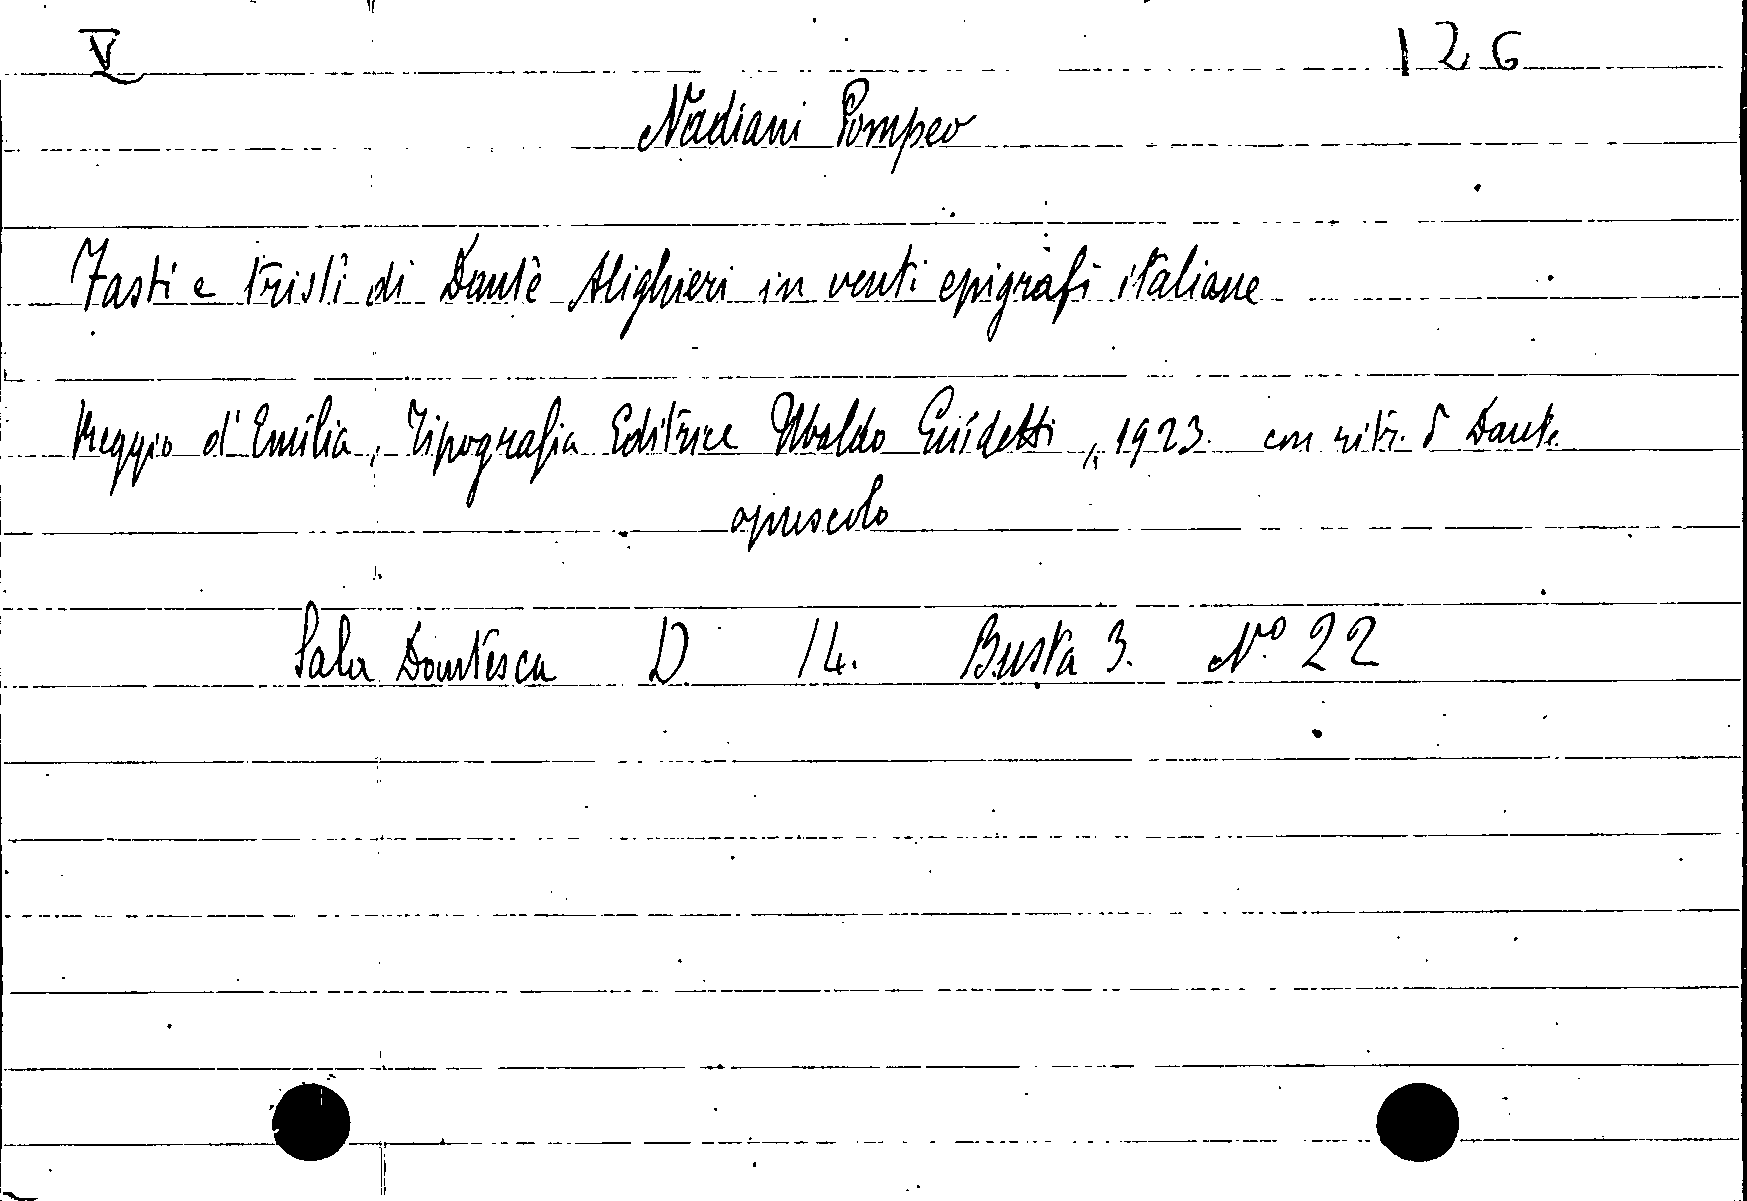 V 126
Nadiani Pompeo
Fasti e tristi di Dante Alighieri in venti epigrafi italiane
Reggio d'Emilia, Tipografia Editrice Ubaldo Guidetti, 1923. con ritr. d Dante
opuscolo
Sala Dantesca D 14. Busta 3. N.º 22